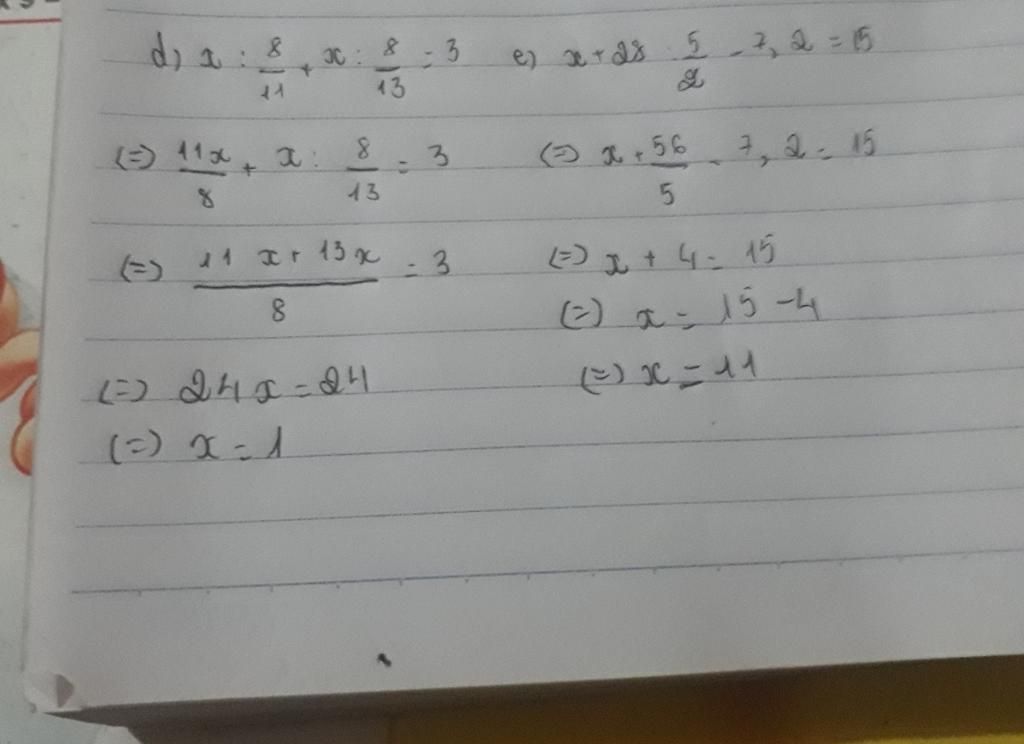 d) x : 8/11 + x : 8/13 = 3
(=) 11x/8 + x : 8/13 = 3
(=) 11x + 13x/8 = 3
(=) 24x = 24
(=) x = 1
e) x + 28 : 5/2 - 7,2 = 15
(=) x + 56/5 - 7,2 = 15
(=) x + 4 = 15
(=) x = 15 - 4
(=) x = 11